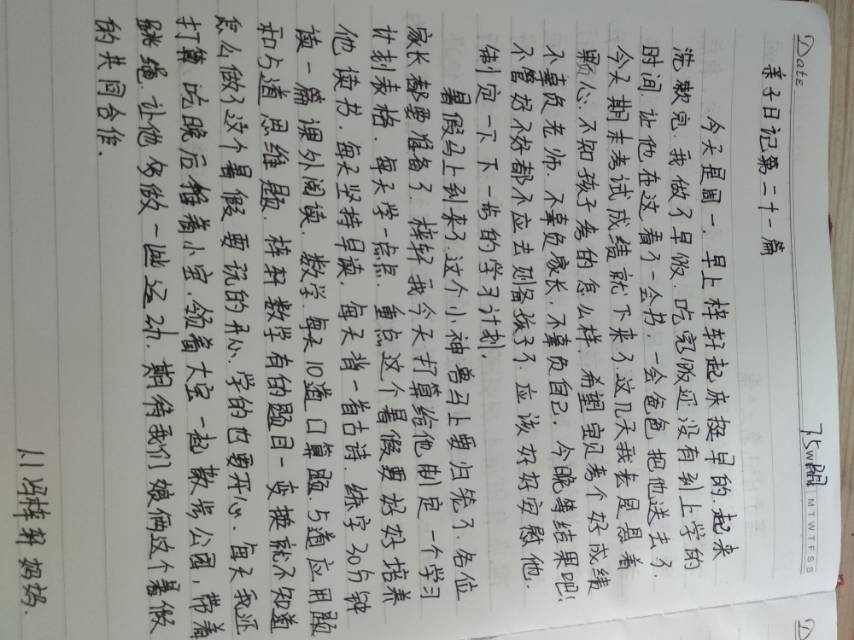 Date
M T W T F S S
亲子日记第二十一篇
今天是周一，早上梓轩起床挺早的，起来
洗漱完，我做了早饭，吃完饭还没有到上学的
时间，让他在这看了一会书，一会爸爸把他送去了.
今天期末考试成绩就下来了，这几天我老是悬着
颗心，不知孩子考的怎么样，希望宝贝考个好成绩
不辜负老师，不辜负家长，不辜负自己，今晚等结果吧!
不管好不好都不应去刺备孩子了，应该好好安慰他.
制定一下下一步的学习计划.
暑假马上到来了，这个小神兽马上要归笼了，各位
家长都要准备了，梓轩我今天打算给他制定一个学习
计划表格，每天学一点点，重点这个暑假要好好培养
他读书，每天坚持早读，每天背一首古诗，练字30分钟
读一篇课外阅读，数学，每天10道口算题，5道应用题
和5道思维题，梓轩数学有的题目一变换就不知道
怎么做了这个暑假要玩的开心，学的也要开心，每天我还
打算吃晚后推着小宝，领着大宝一起散步公园，带着
跳绳，让他多做一些运动，期待我们娘俩这个暑假
的共同合作.
1.1冯梓轩妈妈.
D